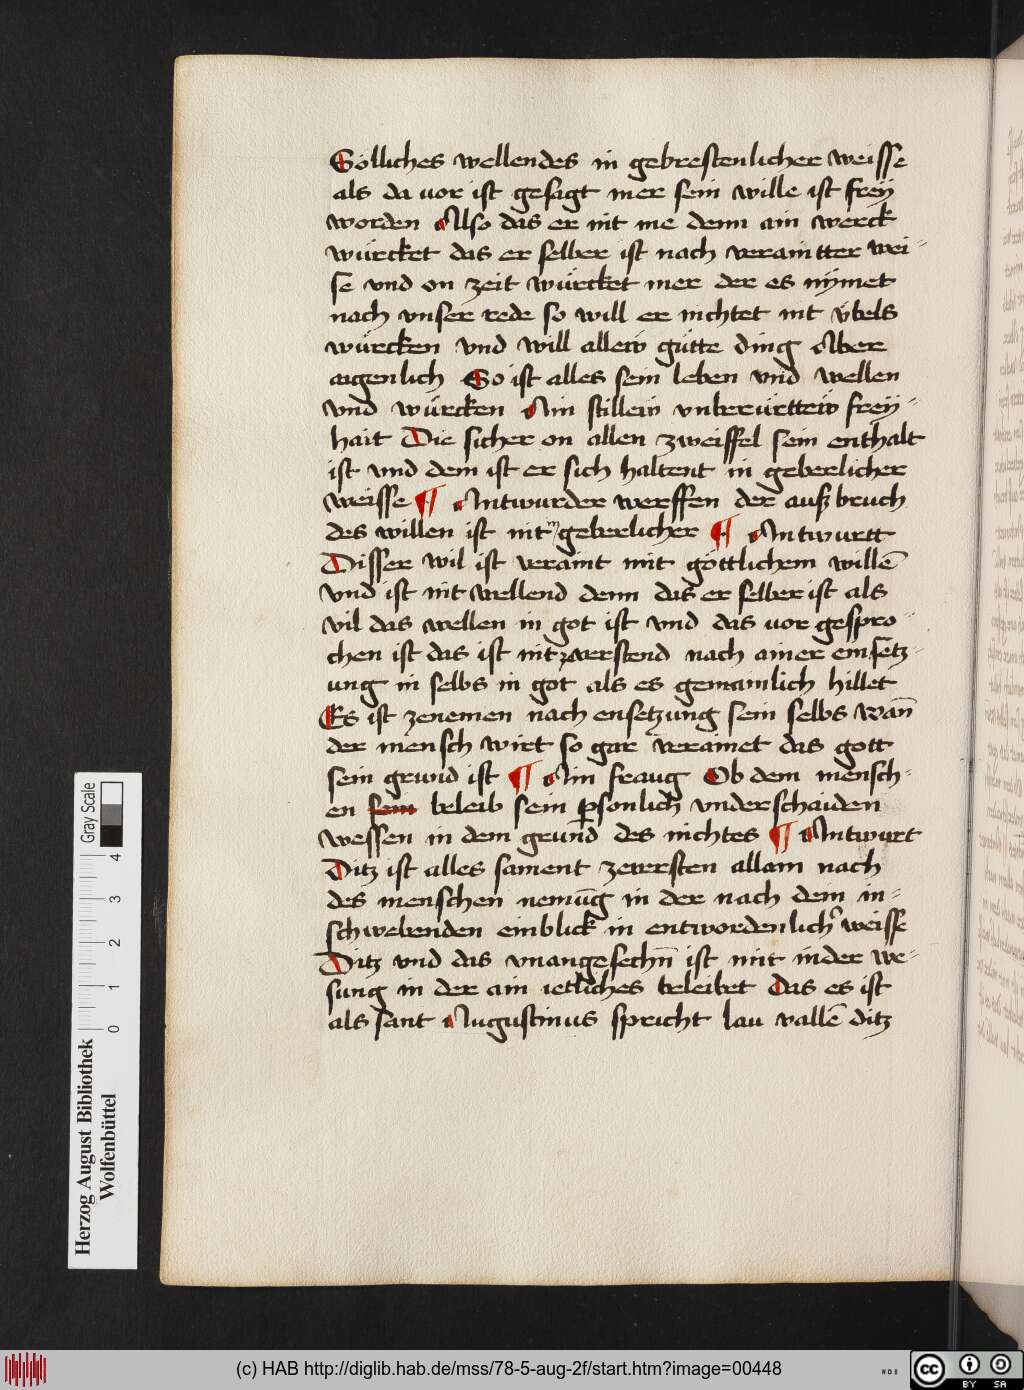 Sólliches wellendes in gebrestenlicher weisse
als da vor ist gesagt mer sein wille ist frey
worden Also das er nit me denn ain werck
würcket das er selber ist nach verainitter wei=
se vnd on zeit würcket mer der es nÿmet
nach vnser rede so will er nichtet nit v̈bels
würcken vnd will allew gütte ding Aber
aigenlich So ist alles sein leben vnd wellen
vnd würcken Ain stillew vnberürttew frey=
hait Die sicher on allen zweiffel sein enthalt
ist vnd dem ist er sich haltent in geberlicher
weisse ¶ Antwurder werffen der auß bruch
des willen ist nit geberlicher ¶ Antwurtt
Disser wil ist veraint mit göttlichem willē
vnd ist nit wellend denn das er selber ist als
vil das wellen in got ist vnd das vor gespro
chen ist das ist nit zverstend nach ainer einsetz=
ung in selbs in got als es gemainlich hillet
Es ist zenemen nach ensetzung sein selbs wan̄
der mensch wirt so gar verainet das gott
sein grund ist ¶ Ain fraug Ob dem mensch=
en sein beleib sein persönlich vnderschaiden
wessen in dem grund des nichtes ¶ Antwurt
Ditz ist alles sament zeversten allain nach
des menschen nemūg in der nach dem in=
schwebenden einblick in entwordenlicher weisse
Ditz vnd das vnangesechn̄ ist mit inder we=
sung in der ain ietliches beleibet Das es ist
als sant Augustinus spricht lau vallē ditz
Herzog August Bibliothek
Wolfenbüttel
Gray Scale
0 1 2 3 4
(c) HAB http://diglib.hab.de/mss/78-5-aug-2f/start.htm?image=00448
WDB
cc BY SA